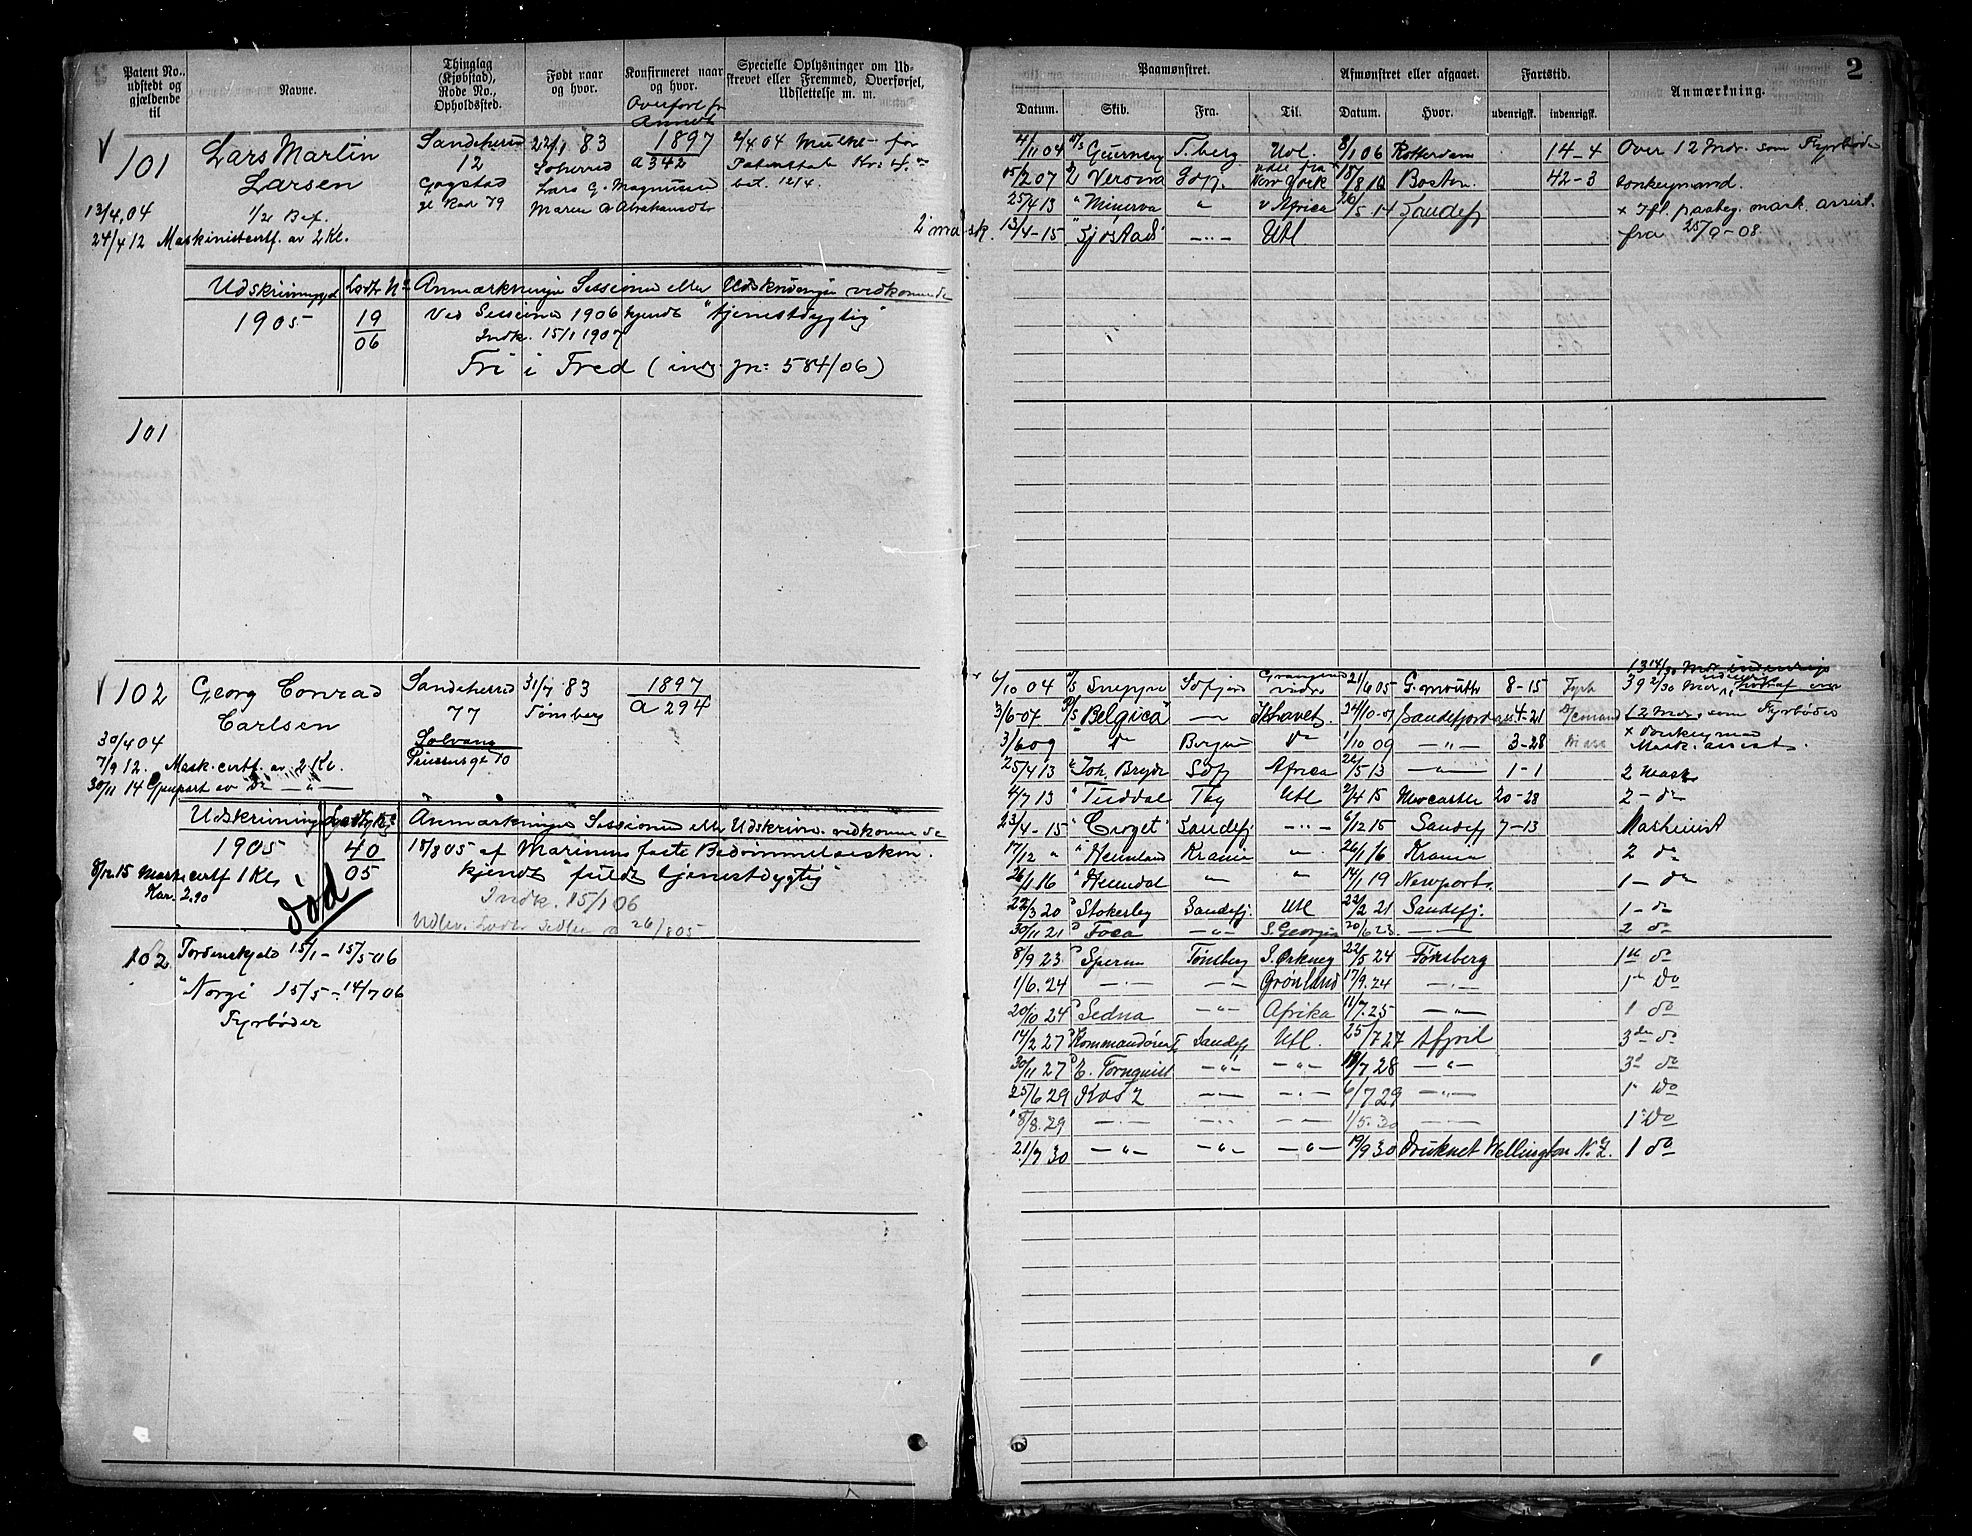 Patent No., udstedt og gjældende til
Navne.
Thinglag (Kjøbstad), Rode No., Opholdssted.
Født naar og hvor.
Konfirmeret naar og hvor.
Specielle Oplysninger om Udskrevet eller Fremmed, Overførsel, Udslettelse m. m.
Overført fr Annot
101
Lars Martin
Larsen
1/2 Bef.
13/4.04
24/4 12 Maskinistcertf. av 2 Kl.
Sandeherred
12
Gogstad
gl Rad 79
22/1 83
Lars G. Magnussen
Maren Abrahamsdtr
1897
a 342
2/4 04 Mulkt for
Kr: 4.
bet. 12/4.
Udskrivning
Lodtr No
Anmærkninger Sessionen eller Udskrivningen vedkommende
1905
19
06
Ved Sessionen 1906 kjendt "tjenestdygtig"
Indk. 15/1 1907
Fri i Fred (indg. jn: 584/06)
101
102
Georg Conrad
Carlsen
30/4 04
7/9 12. Mask. certf. av 2 Kl.
30/11 14 Gjenpart av Do — " —
Sandeherred
77
Solvang
31/7 83
Tønsberg
1897
a 294
Udskrivning
Anmærkninger Sessionen eller Udskrivn. vedkommende
1905
40
05
18/8 05 af Marinens faste Bedømmelseskom.
kjendt "fuldt tjenestdygtig"
Indk. 15/1 06
Udlev. Lodtr Sedlen 26/8 05
8/12 15 Mask. certf 1 Kl.
Kar. 2.90
død
102
Tordenskjold 15/1 – 15/5 06
"Norge 15/5 – 14/7 06
Fyrbøder
2
Paamønstret.
Afmønstret eller afgaaet.
Fartstid.
Anmærkning.
Datum. Skib. Fra. Til. Datum. Hvor. udenrigsk. indenrigsk.
4/11 04 Guernsey T.berg Utl. 8/1 06 Rotterdam 14-4 Over 12 Mdr. som Fyrbøder
15/2 07 Verona New York 18/8 10 Boston 42-3 donkeymand.
25/4 13 " Minerva " v Afrika 26/5 14 Sandefj + Ifl. paateg. mask. assist.
2 mask. 13/4-15 " Sjøstad — " — Utl fra 25/9-08
6/10 04 Sneppe 21/6 05 G.mouth 8-15 Fyrb
3/6-07 Belgica — Ishavet. 24/10-07 Sandefjord 4-21 12 Mdr. som Fyrbøder
3/6 09 do Bergen do 1/10 09 — " — 3-28 + donkeymand
Mask. assist.
25/4 13 Joh. Bryde Sdfj Africa 26/5 13 — " — 1-1 2 Mask
4/7 13 " Tuddal Tbg Utl 2/4 15 Newcastle 20-28 2 - do
23/4-15 " Coronet" Sandefj — " — 6/12 15 Sandefj 7-13 Maskinist
17/12 " " Krania " 26/1 16 Krania 2 do
26/1 16 " Heimdal " " 14/1 19 Newport 1 - do
22/3 20 Stokesby Sandefj. Utl 22/2 21 Sandefj. 1 - do
30/11 21 Foca — " — S. Georgia 20/6 23 — " — 2 do
8/9 23 Sperm Tønsberg S. Orkney 22/5 24 Tønsberg 1ste do
1/6.24 — " — — " — Grønland 17/9.24 — " — 1 Do
20/10 24 Sedna — " — Afrika 11/7.25 — " — 1 do
14/2 27 Kommandøren I Sandefj Utl. 25/7 27 Afgivd 3die do
30/11 27 E. Tornquist — " — — " — 7 28 — " — 3d do
25/6 29 Kos 2 — " — — " — 6/7 29 — " — 1 Do
8/8.29 — " — — " — — " — 1/5.30 — " — 1 Do
21/7 30 — " — — " — — " — 19/9 30 Druknet Wellington N.Z. 1 do